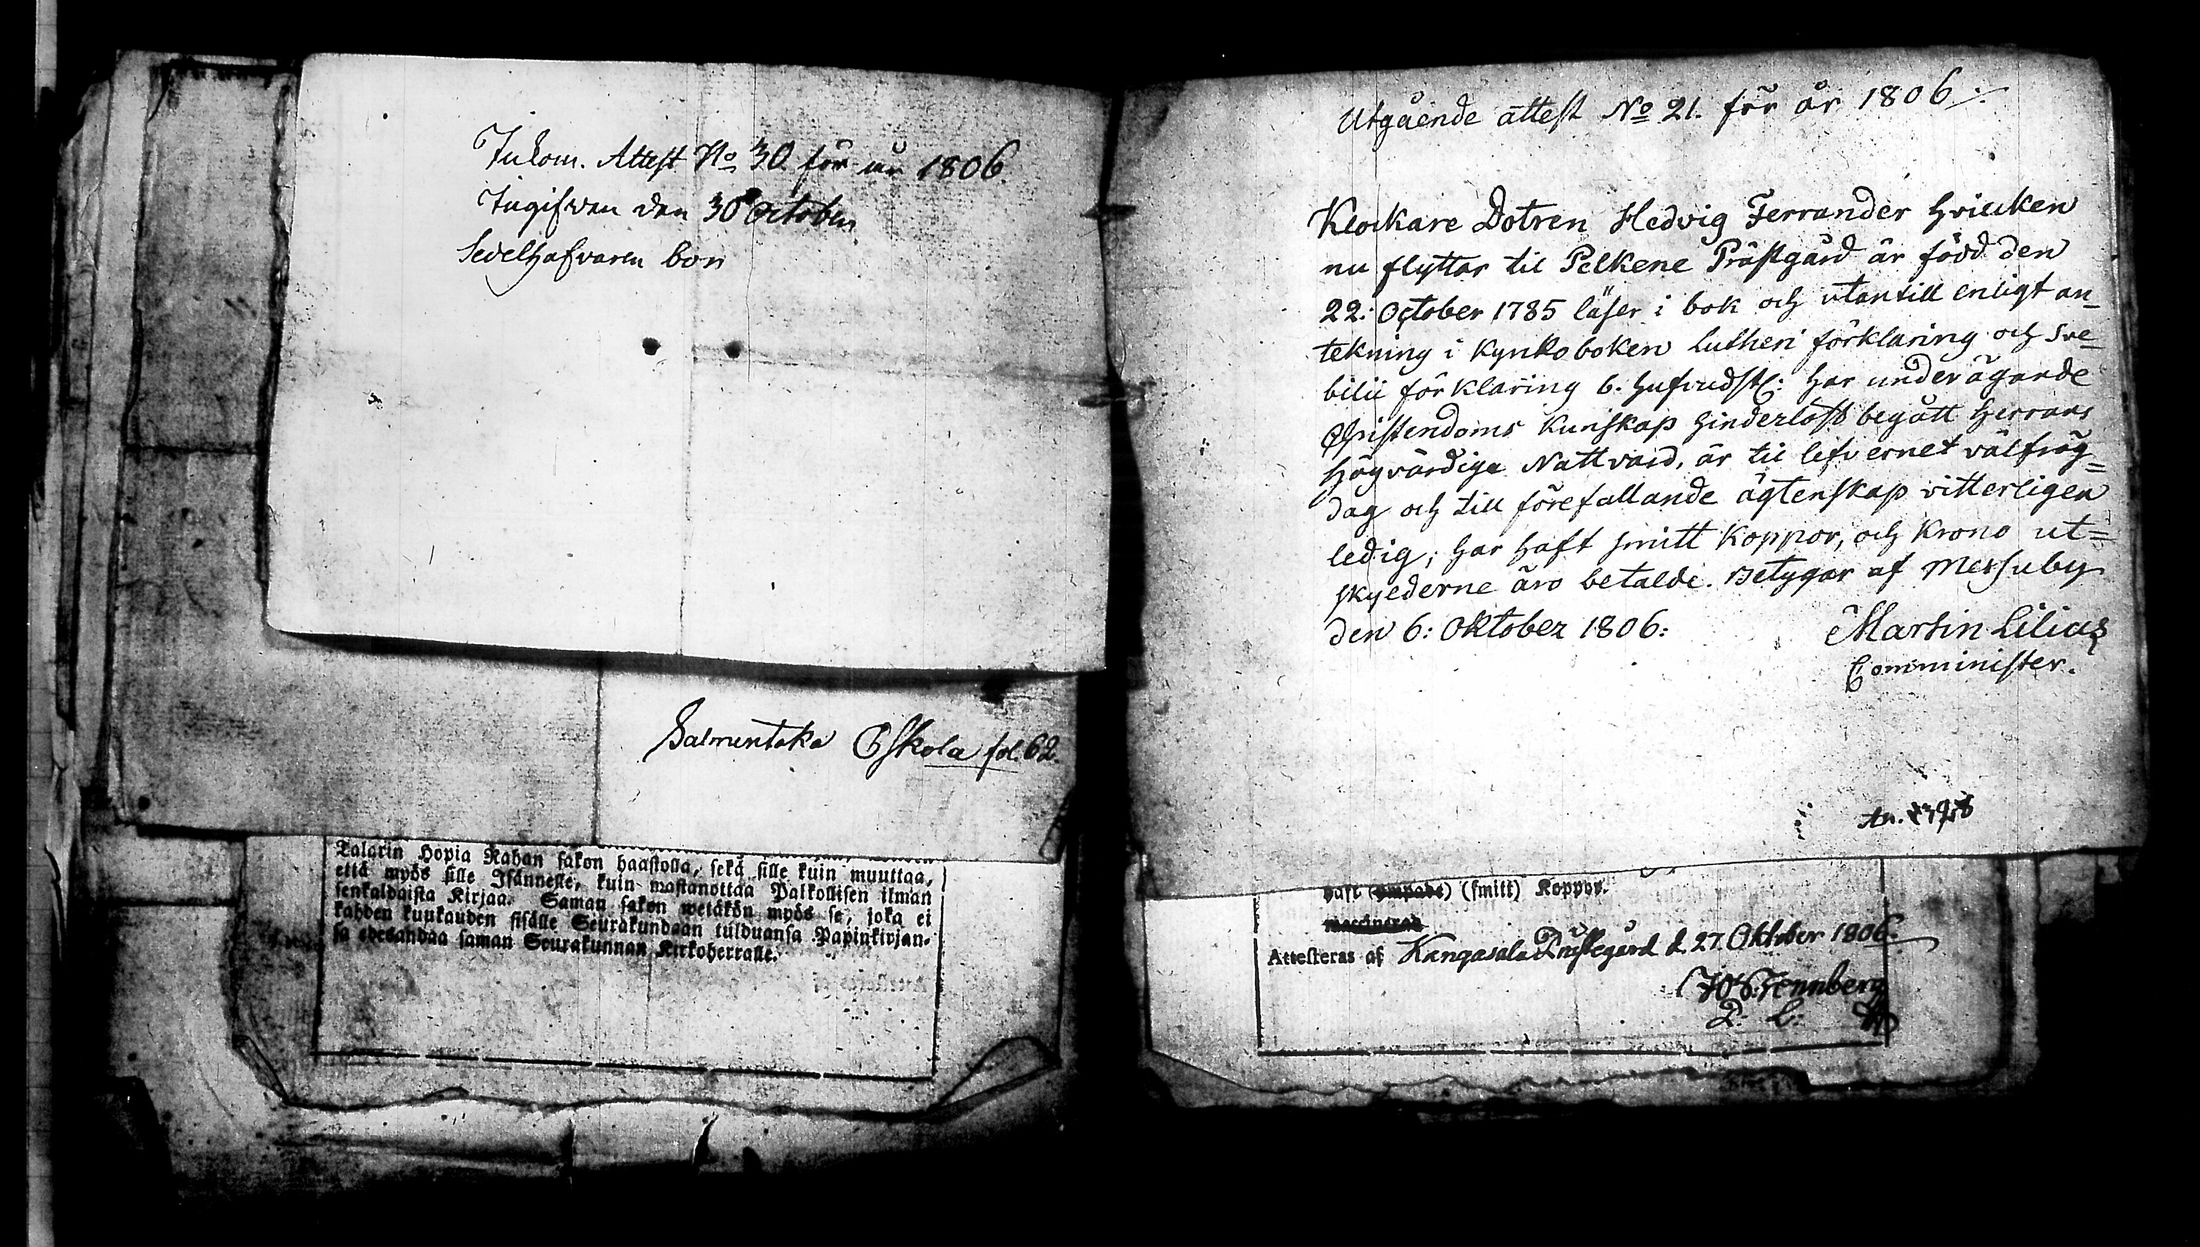 Inkom. Attest No 30 för år 1806
Ingifven den 30 October
Sedelhafvaren bor
Salmentaka Eskola fol. 62.
Talarin Hopia Rahan sakon haastolla, sekä sille kuin muuttaa,
että myös sille Isännelle, kuin mastanottaa Palkollisen ilman
senkaldaista Kirjaa. Saman sakon wetäkön myös se, joka ei
kahden kuukauden sisälle Seurakundaan tulduansa Papinkirjan-
sa edesandaa saman Seurakunnan Kirkoherralle.
Utgående attest No 21. för år 1806:
Klockare Dotren Hedvig Ferrander hvilcken
nu flyttar til Pelkene Prästgård är född den
22: October 1785 läser i bok och utantill enligt an-
tekning i Kyrkoboken Lutheri förklaring och Sve-
bilii förklaring 6. hufvudst: har under ägande
Christendoms Kunskap hinderlöst begått Herrans
Högvärdiga Nattvard, är til lefvernet välfräg=
dag och till förefallande ägtenskap vitterligen
ledig; har haft smitt Koppor, och Krono ut=
skyederne äro betalde. Betygar af Messuby
den 6: Oktober 1806:
Martin Lilius
Comminister.
haft (ympade) (smitt) Koppor.
vaccinerad
Attesteras af Kangasala Prästegård d. 27. Oktober 1806.